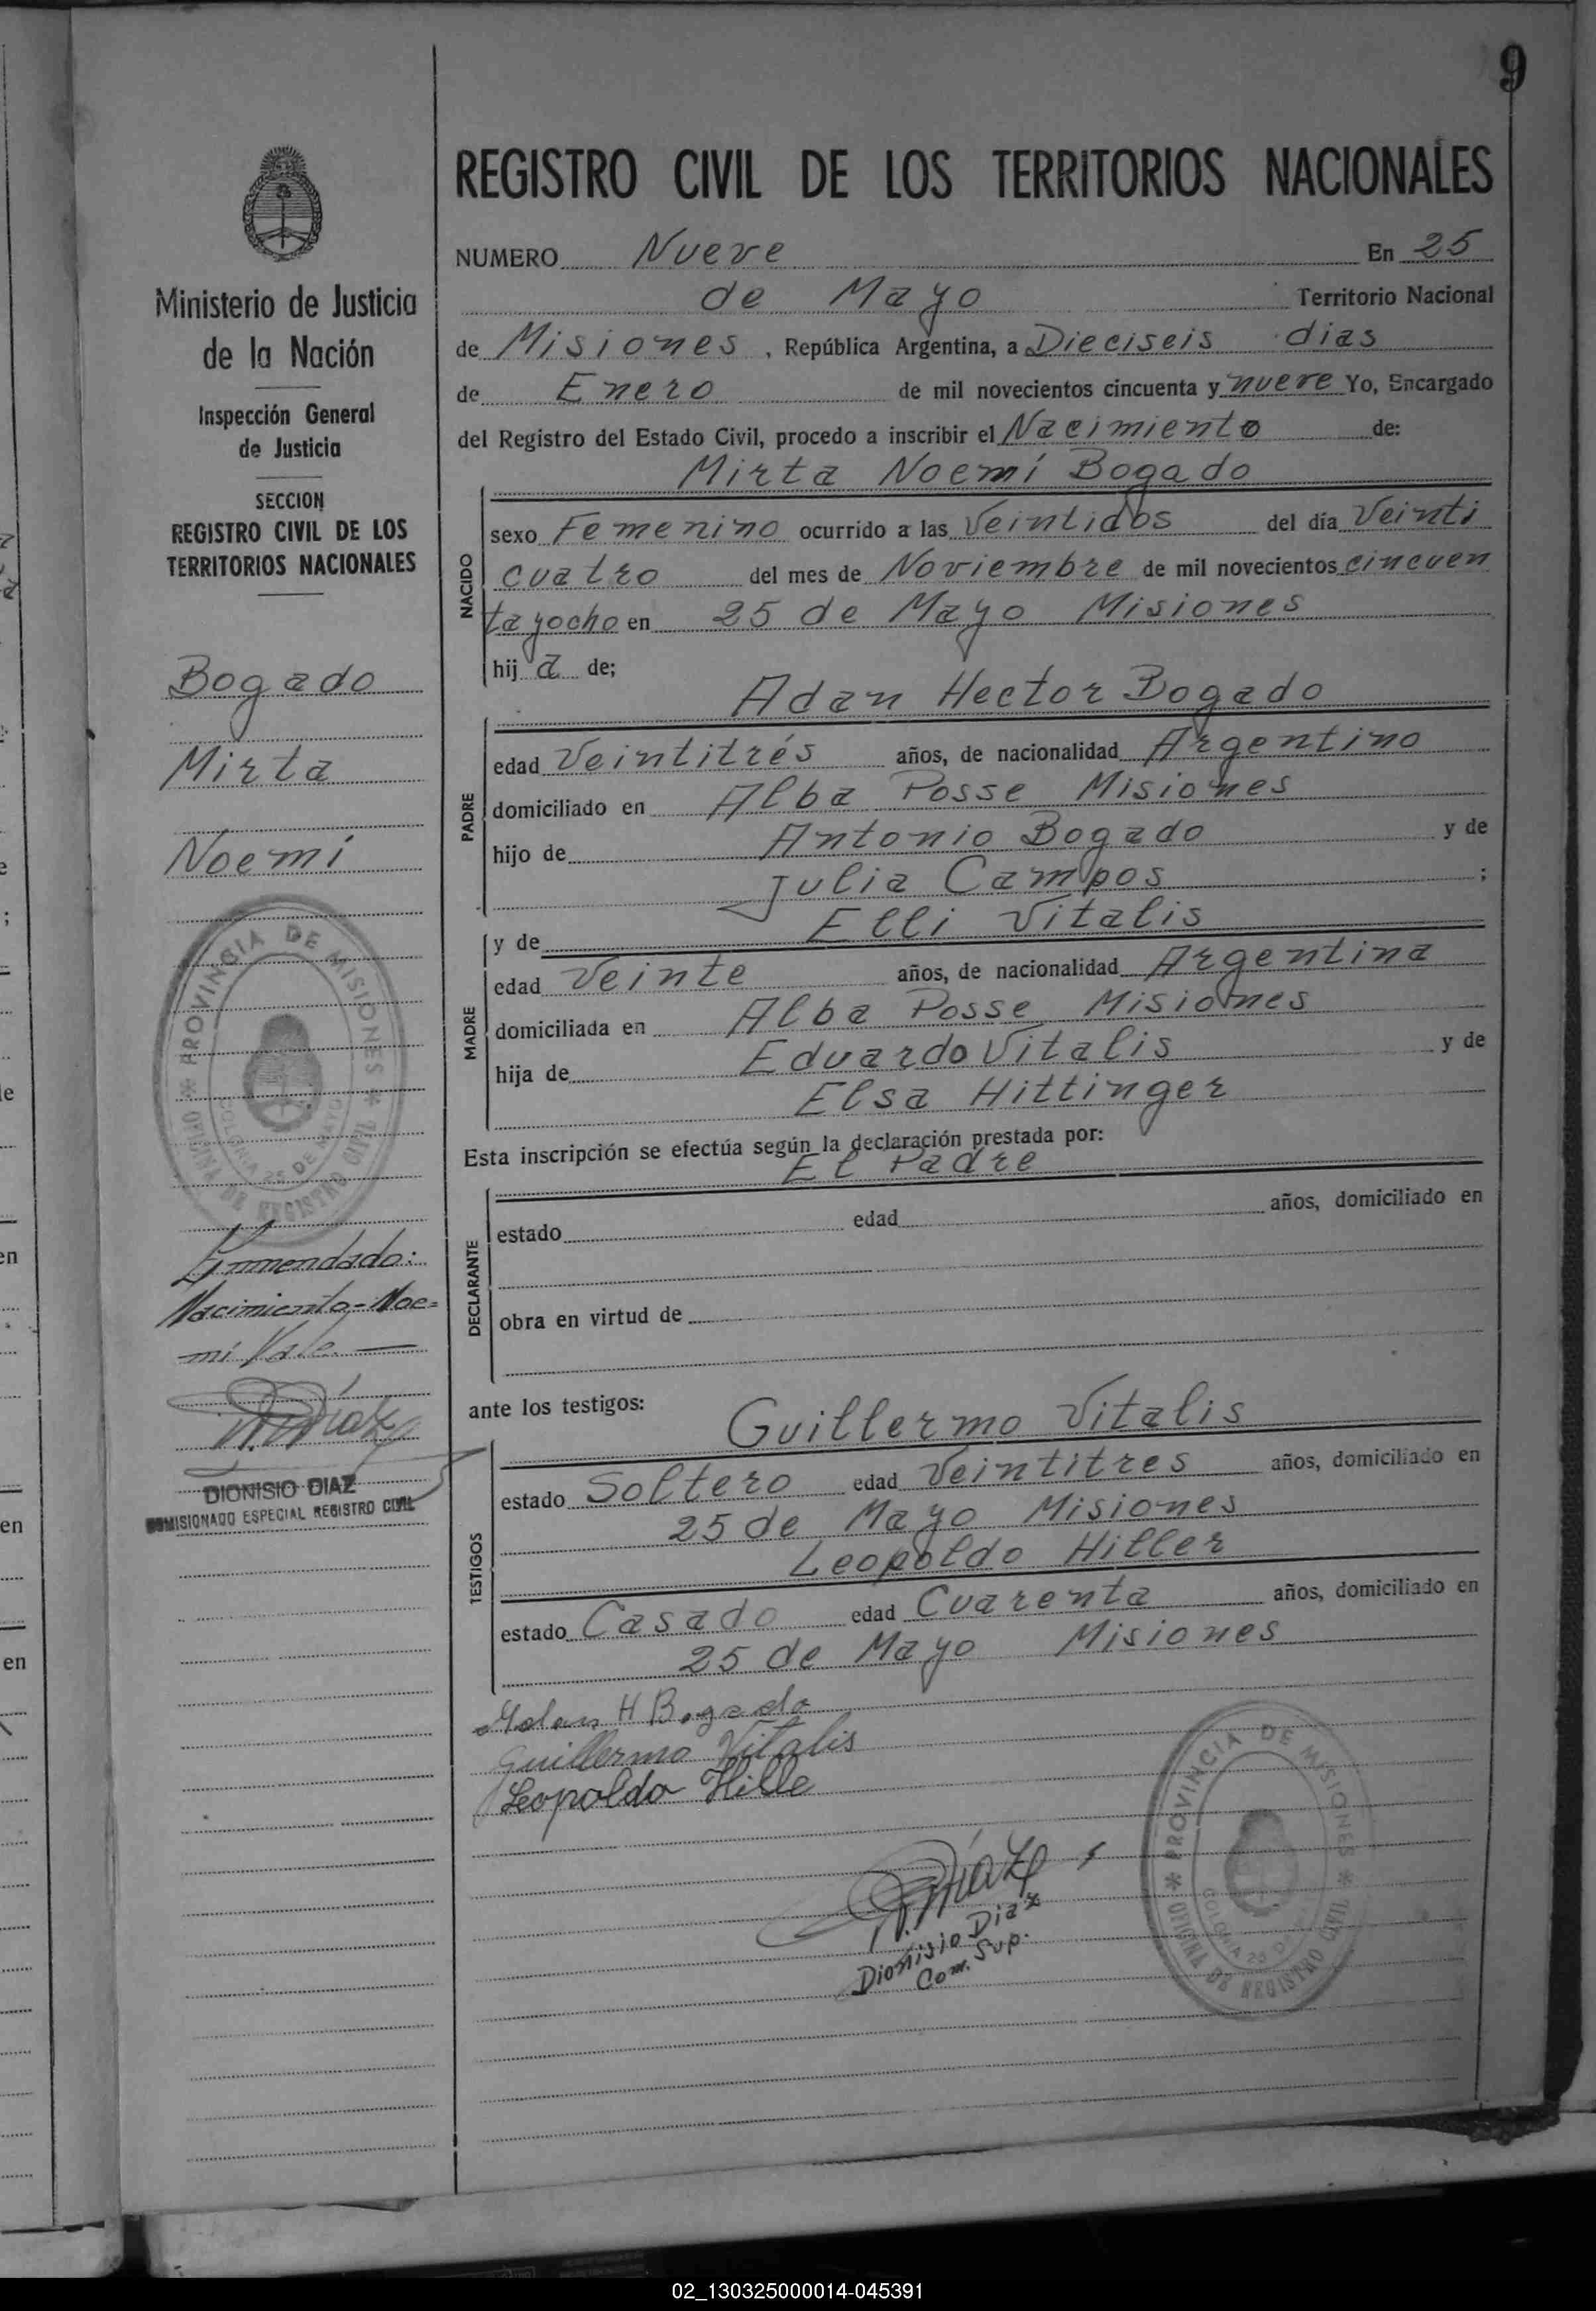 9
REGISTRO CIVIL DE LOS TERRITORIOS NACIONALES
Ministerio de Justicia
de la Nación
Inspección General
de Justicia
SECCION
REGISTRO CIVIL DE LOS
TERRITORIOS NACIONALES
Bogado
Mirta
Noemí
PROVINCIA DE MISIONES
OFICINA DE REGISTRO CIVIL
COLONIA 25 DE MAYO
Enmendado:
Nacimiento-Noe=
mí Vale.
D. Diaz
DIONISIO DIAZ
COMISIONADO ESPECIAL REGISTRO CIVIL
NUMERO Nueve En 25
de Mayo Territorio Nacional
de Misiones, República Argentina, a Dieciseis dias
de Enero de mil novecientos cincuenta y nueve Yo, Encargado
del Registro del Estado Civil, procedo a inscribir el Nacimiento de:
Mirta Noemí Bogado
NACIDO
sexo Femenino ocurrido a las Veintidos del día Veinti
cuatro del mes de Noviembre de mil novecientos cincuen
ta y ocho en 25 de Mayo Misiones
hij a de;
Adan Hector Bogado
PADRE
edad Veintitrés años, de nacionalidad Argentino
domiciliado en Alba Posse Misiones
hijo de Antonio Bogado y de
Julia Campos ;
y de Elli Vitalis
MADRE
edad Veinte años, de nacionalidad Argentina
domiciliada en Alba Posse Misiones
hija de Eduardo Vitalis y de
Elsa Hittinger
Esta inscripción se efectúa según la declaración prestada por:
El Padre
DECLARANTE
estado edad años, domiciliado en
obra en virtud de
ante los testigos:
Guillermo Vitalis
TESTIGOS
estado Soltero edad Veintitres años, domiciliado en
25 de Mayo Misiones
Leopoldo Hiller
estado Casado edad Cuarenta años, domiciliado en
25 de Mayo Misiones
Adan H Bogado
Guillermo Vitalis
Leopoldo Hille
D. Diaz
Dionisio Diaz
Com. Sup.
PROVINCIA DE MISIONES
OFICINA DE REGISTRO CIVIL
COLONIA 25 D
02_130325000014-045391